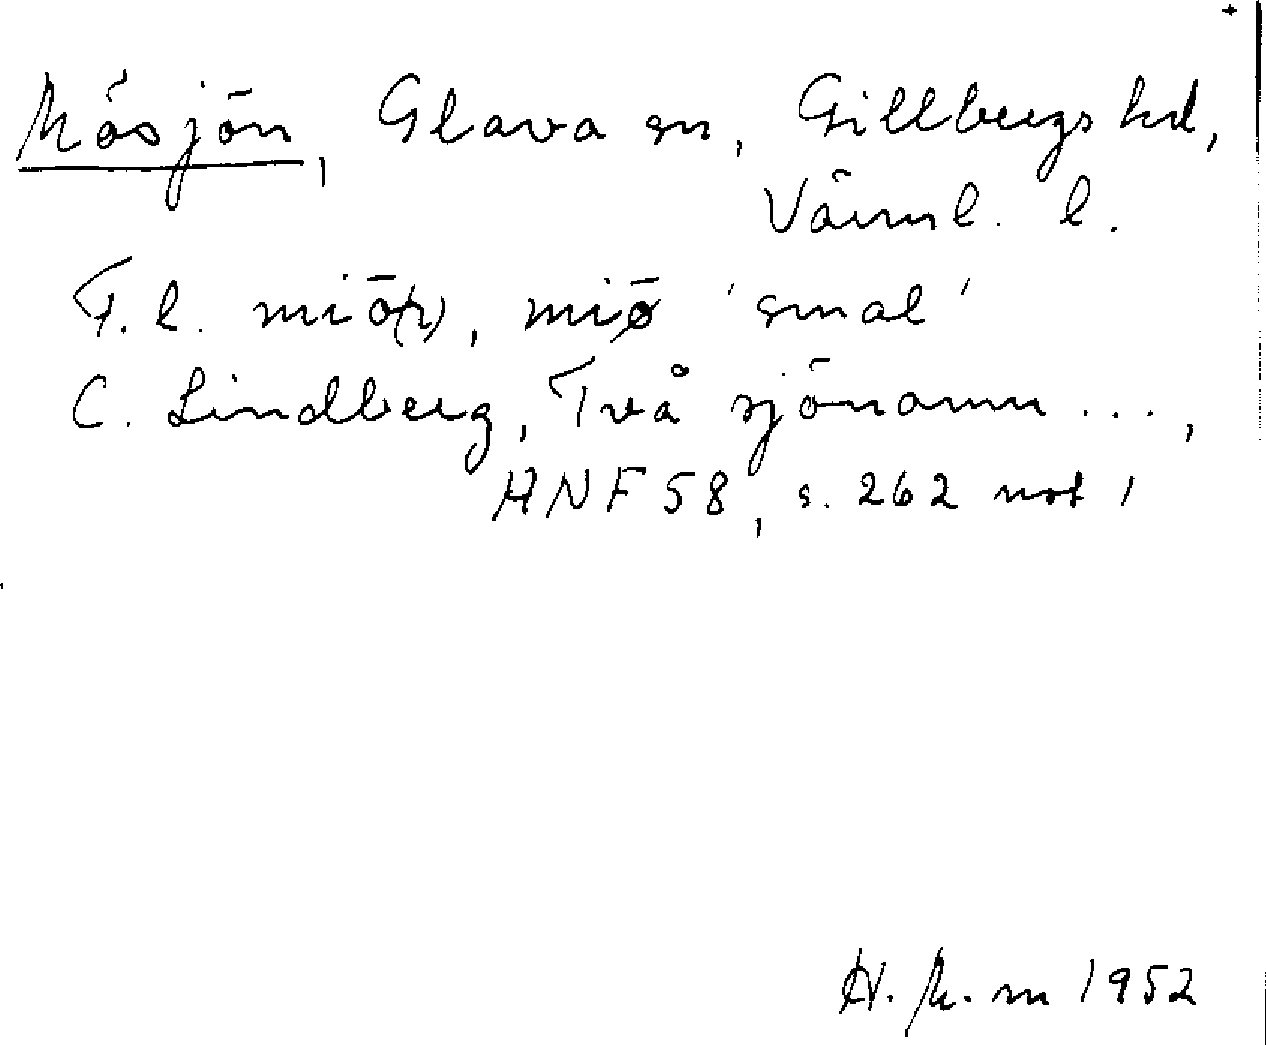 Mösjön, Glava sn, Gillbergs hd,
Värml. l.
F. l. miö(r), miø 'smal'
C. Lindberg, Två sjönamn ...,
HNF 58, s. 262 not 1
1952